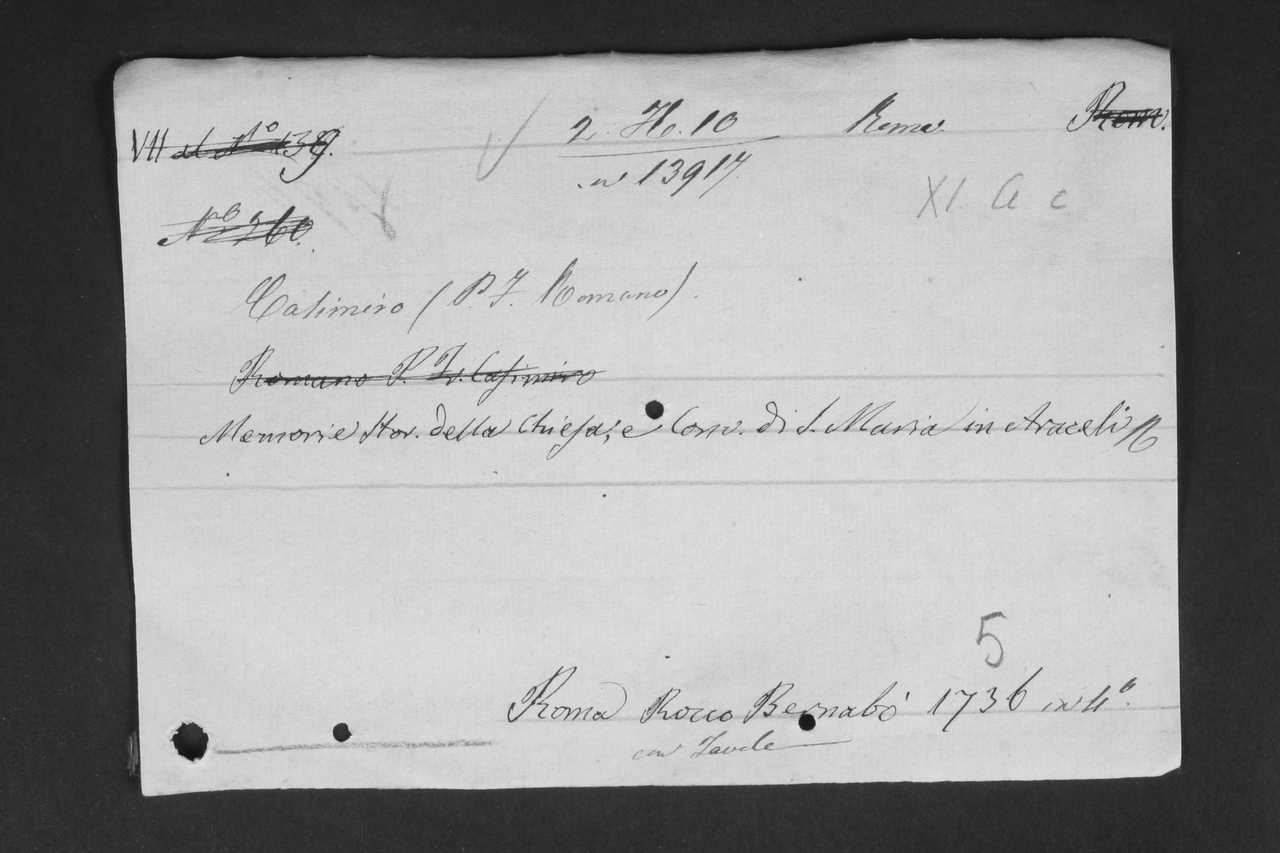 VII al N° 139. 2. H. 10 Roma. Rom.
13917
XI. A c
N° 260.
Casimiro (P. F. Romano).
Romano P. Fr. Casimiro
Memorie Stor. della Chiesa, e Conv. di S. Maria in Araceli R
5
Roma Rocco Bernabò 1736 in 4°.
con Tavole